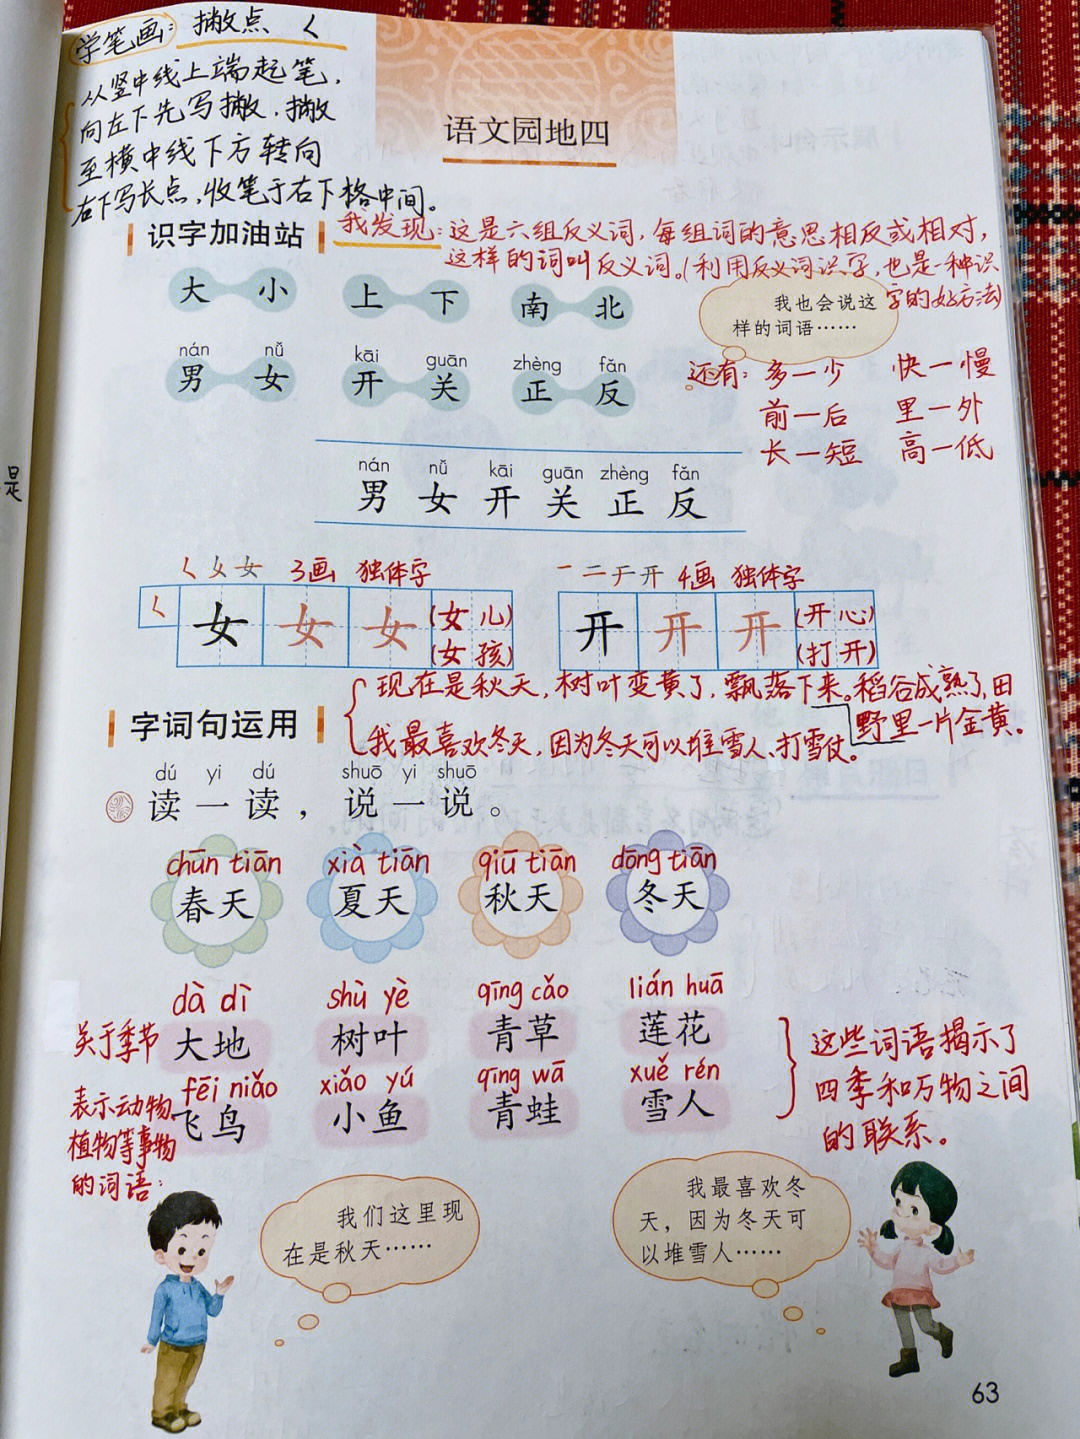 学笔画：撇点 ㄑ
从竖中线上端起笔，
向左下先写撇，撇
至横中线下方转向
右下写长点，收笔于右下格中间。
语文园地四
识字加油站
我发现：这是六组反义词，每组词的意思相反或相对，
这样的词叫反义词。(利用反义词识字，也是一种识
字的好方法)
大 小 上 下 南 北
我也会说这
样的词语……
nán nǚ kāi guān zhèng fǎn
男 女 开 关 正 反
还有：多—少 快—慢
前—后 里—外
长—短 高—低
nán nǚ kāi guān zhèng fǎn
男 女 开 关 正 反
是
ㄑ 女 女 3画 独体字
一 二 开 开 4画 独体字
ㄑ 女 女 女 (女儿)
(女孩)
开 开 开 (开心)
(打开)
现在是秋天，树叶变黄了，飘落下来。稻谷成熟了，田
野里一片金黄。
我最喜欢冬天，因为冬天可以堆雪人、打雪仗。
字词句运用
dú yi dú shuō yi shuō
读一读，说一说。
chūn tiān xià tiān qiū tiān dōng tiān
春天 夏天 秋天 冬天
dà dì shù yè qīng cǎo lián huā
关于季节
大地 树叶 青草 莲花
fēi niǎo xiǎo yú qīng wā xuě rén
飞鸟 小鱼 青蛙 雪人
表示动物、
植物等事物
的词语：
这些词语揭示了
四季和万物之间
的联系。
我们这里现
在是秋天……
我最喜欢冬
天，因为冬天可
以堆雪人……
63